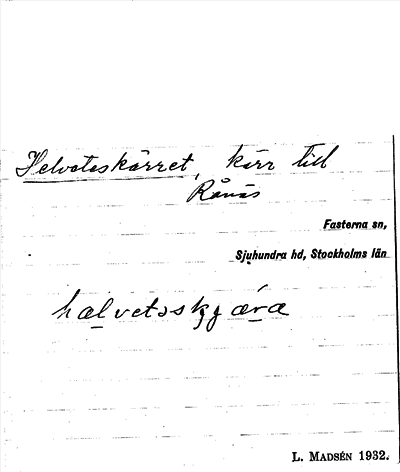 Helveteskärret, kärr till
Rånäs
Fasterna sn,
Sjuhundra hd, Stockholms län
hælvetəskjæra
L. Madsén 1932.